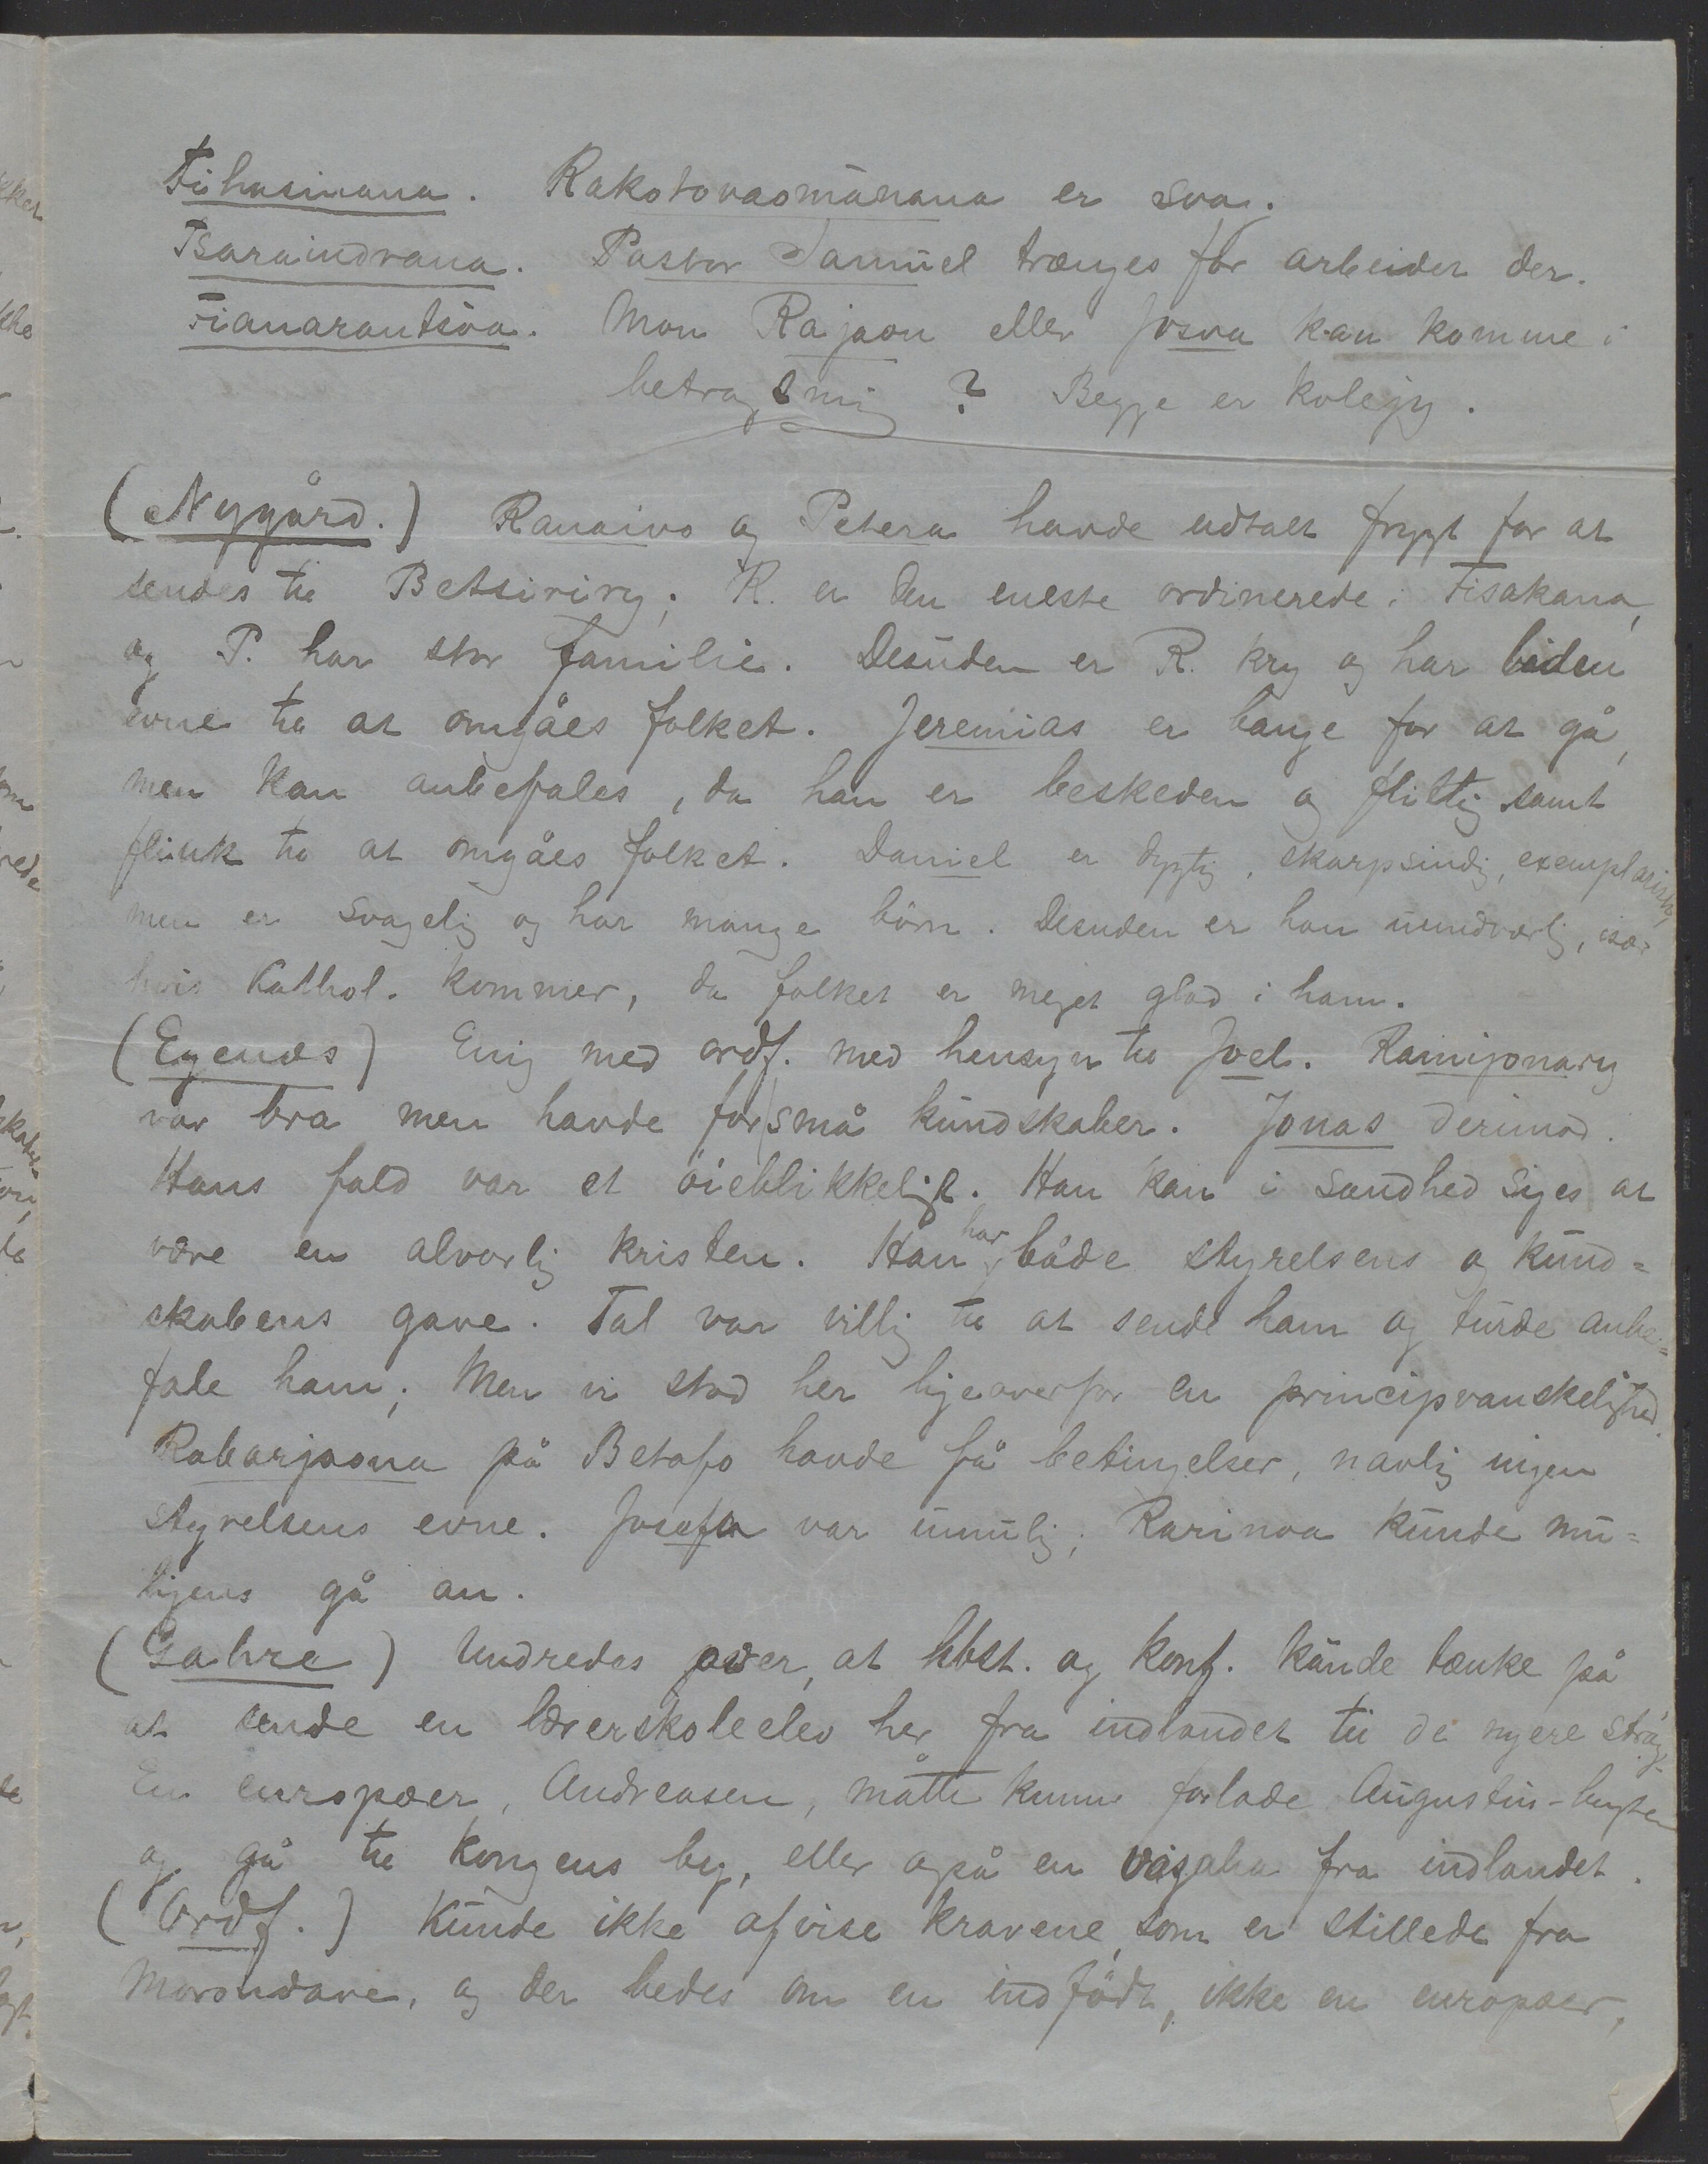 Fihasinana. Rakotovaomanana er svag.
Tsaraindrana. Pastor Samuel trænges for arbeidet der.
Fianarantsoa. Mon Rajaon eller Josva kan komme i
betragtning? Begge er kolegg.
(Nygård.) Ranaivo og Petera havde udtalt frygt for at
sendes til Betsiriry; R. er den eneste ordinerede i Fisakana,
og P. har stor familie. Desuden er R. kry og har liden
evne til at omgåes folket. Jeremias er bange for at gå,
men kan anbefales, da han er beskeden og flittig samt
flink til at omgåes folket. Daniel er dygtig, skarpsindig, exemplarisk,
men er svagelig og har mange børn. Desuden er han uundværlig, især
hvis Kathol. kommer, da folket er meget glad i ham.
(Egenæs) Enig med ordf. med hensyn til Joel. Rainijonary
var bra men havde for små kundskaber. Jonas derimod.
Hans fald var et øieblikkeligt. Han kan i sandhed siges at
være en alvorlig kristen. Han har både styrelsens og kund=
skabens gave. Tal var villig til at sende ham og turde anbe=
fale ham; Men vi stod her ligeoverfor en principvanskelighed.
Rabarjaona på Betafo havde få betingelser, navlig ingen
styrelsens evne. Josefa var umulig; Rarinoa kunde mu=
ligens gå an.
(Gahre) Undredes over, at hbst. og konf. kunde tænke på
at sende en lærerskoleelev her fra indlandet til de nyere strøg.
En europæer, Andreasen, måtte kunne forlade Augustin-bugten
og gå til kongens by, eller også en vazaha fra indlandet.
(Ordf.) Kunde ikke afvise kravene, som er stillede fra
Morondava, og der bedes om en indfødt, ikke en europæer,